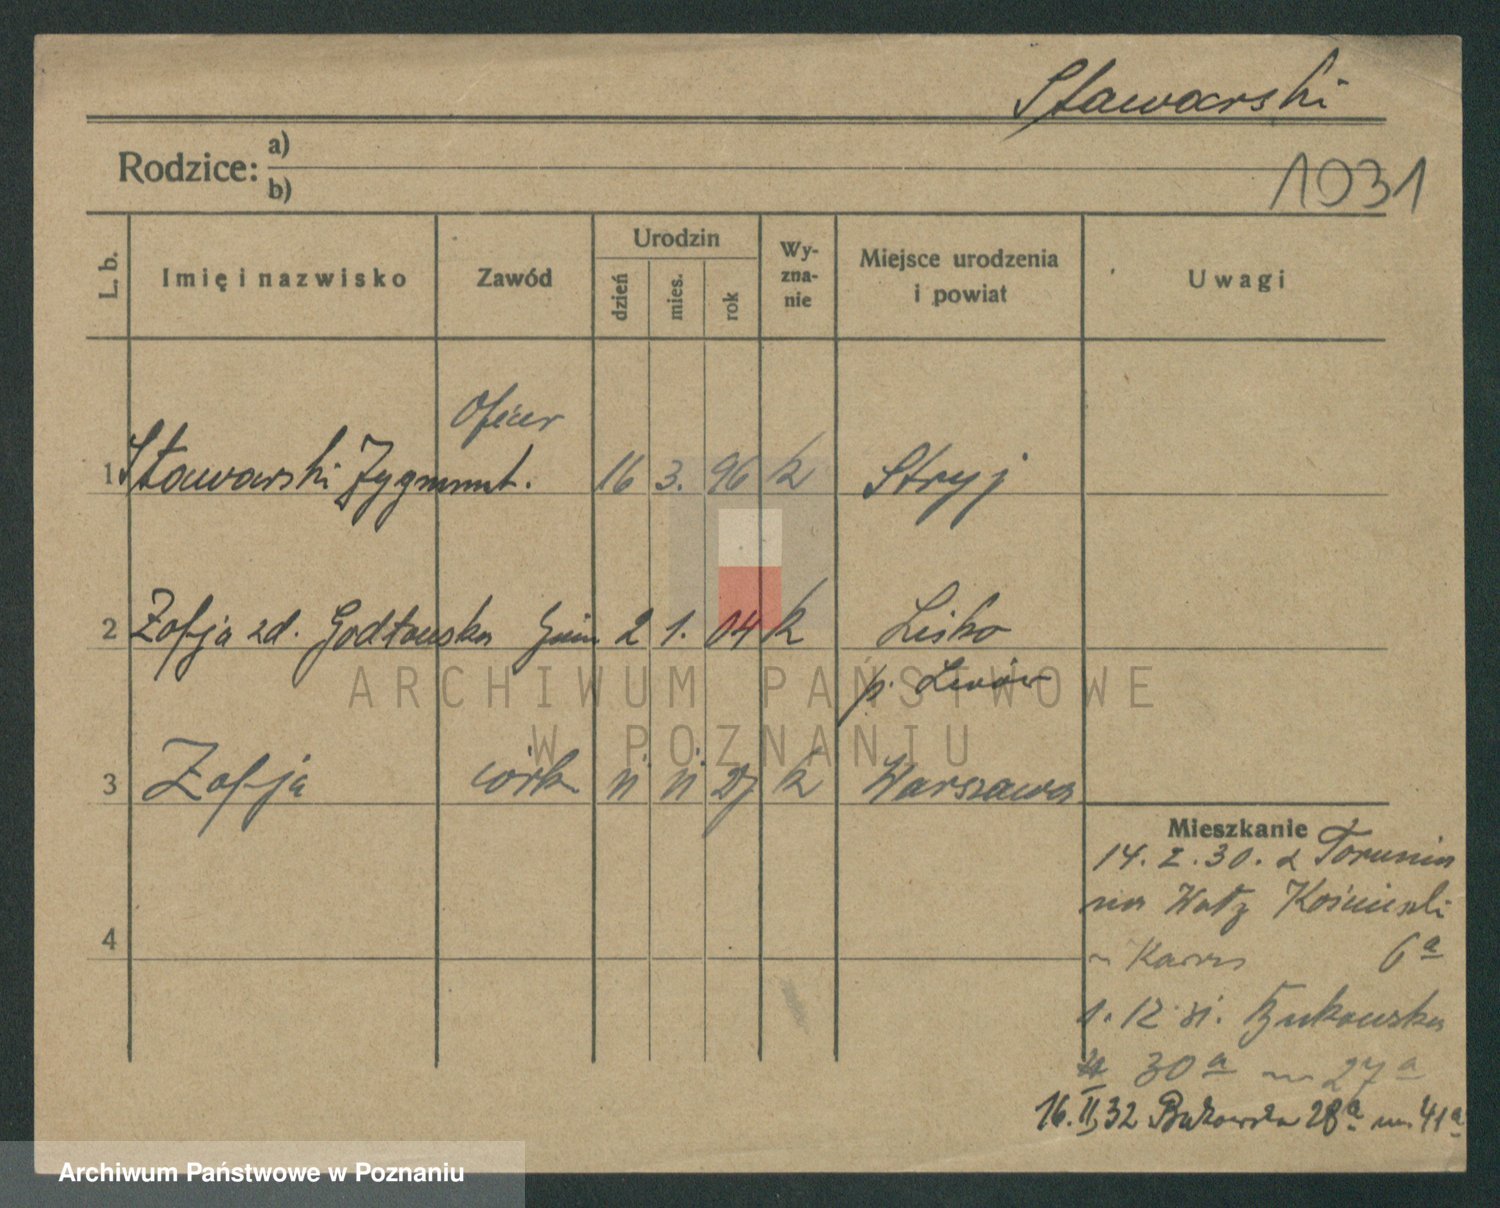 Stawarski
Rodzice: a)
b)
1931
L. b. Imię i nazwisko Zawód Urodzin dzień mies. rok Wy-zna-nie Miejsce urodzenia i powiat Uwagi
Oficer
1 Stawarski Zygmunt. 16 3. 96 k Stryj
2 Zofja zd. Godłowska 2 1. 04 k Lisko
p. Lwów
3 Zofja córk 27 k Warszawa
Mieszkanie
14. I. 30. z Torunia
na Kościuszki
6a
4
1. 12. 31. Bukowska
30a 27a
16. II. 32 Bukowska 28a m. 41a
ARCHIWUM PAŃSTWOWE
W POZNANIU
Archiwum Państwowe w Poznaniu